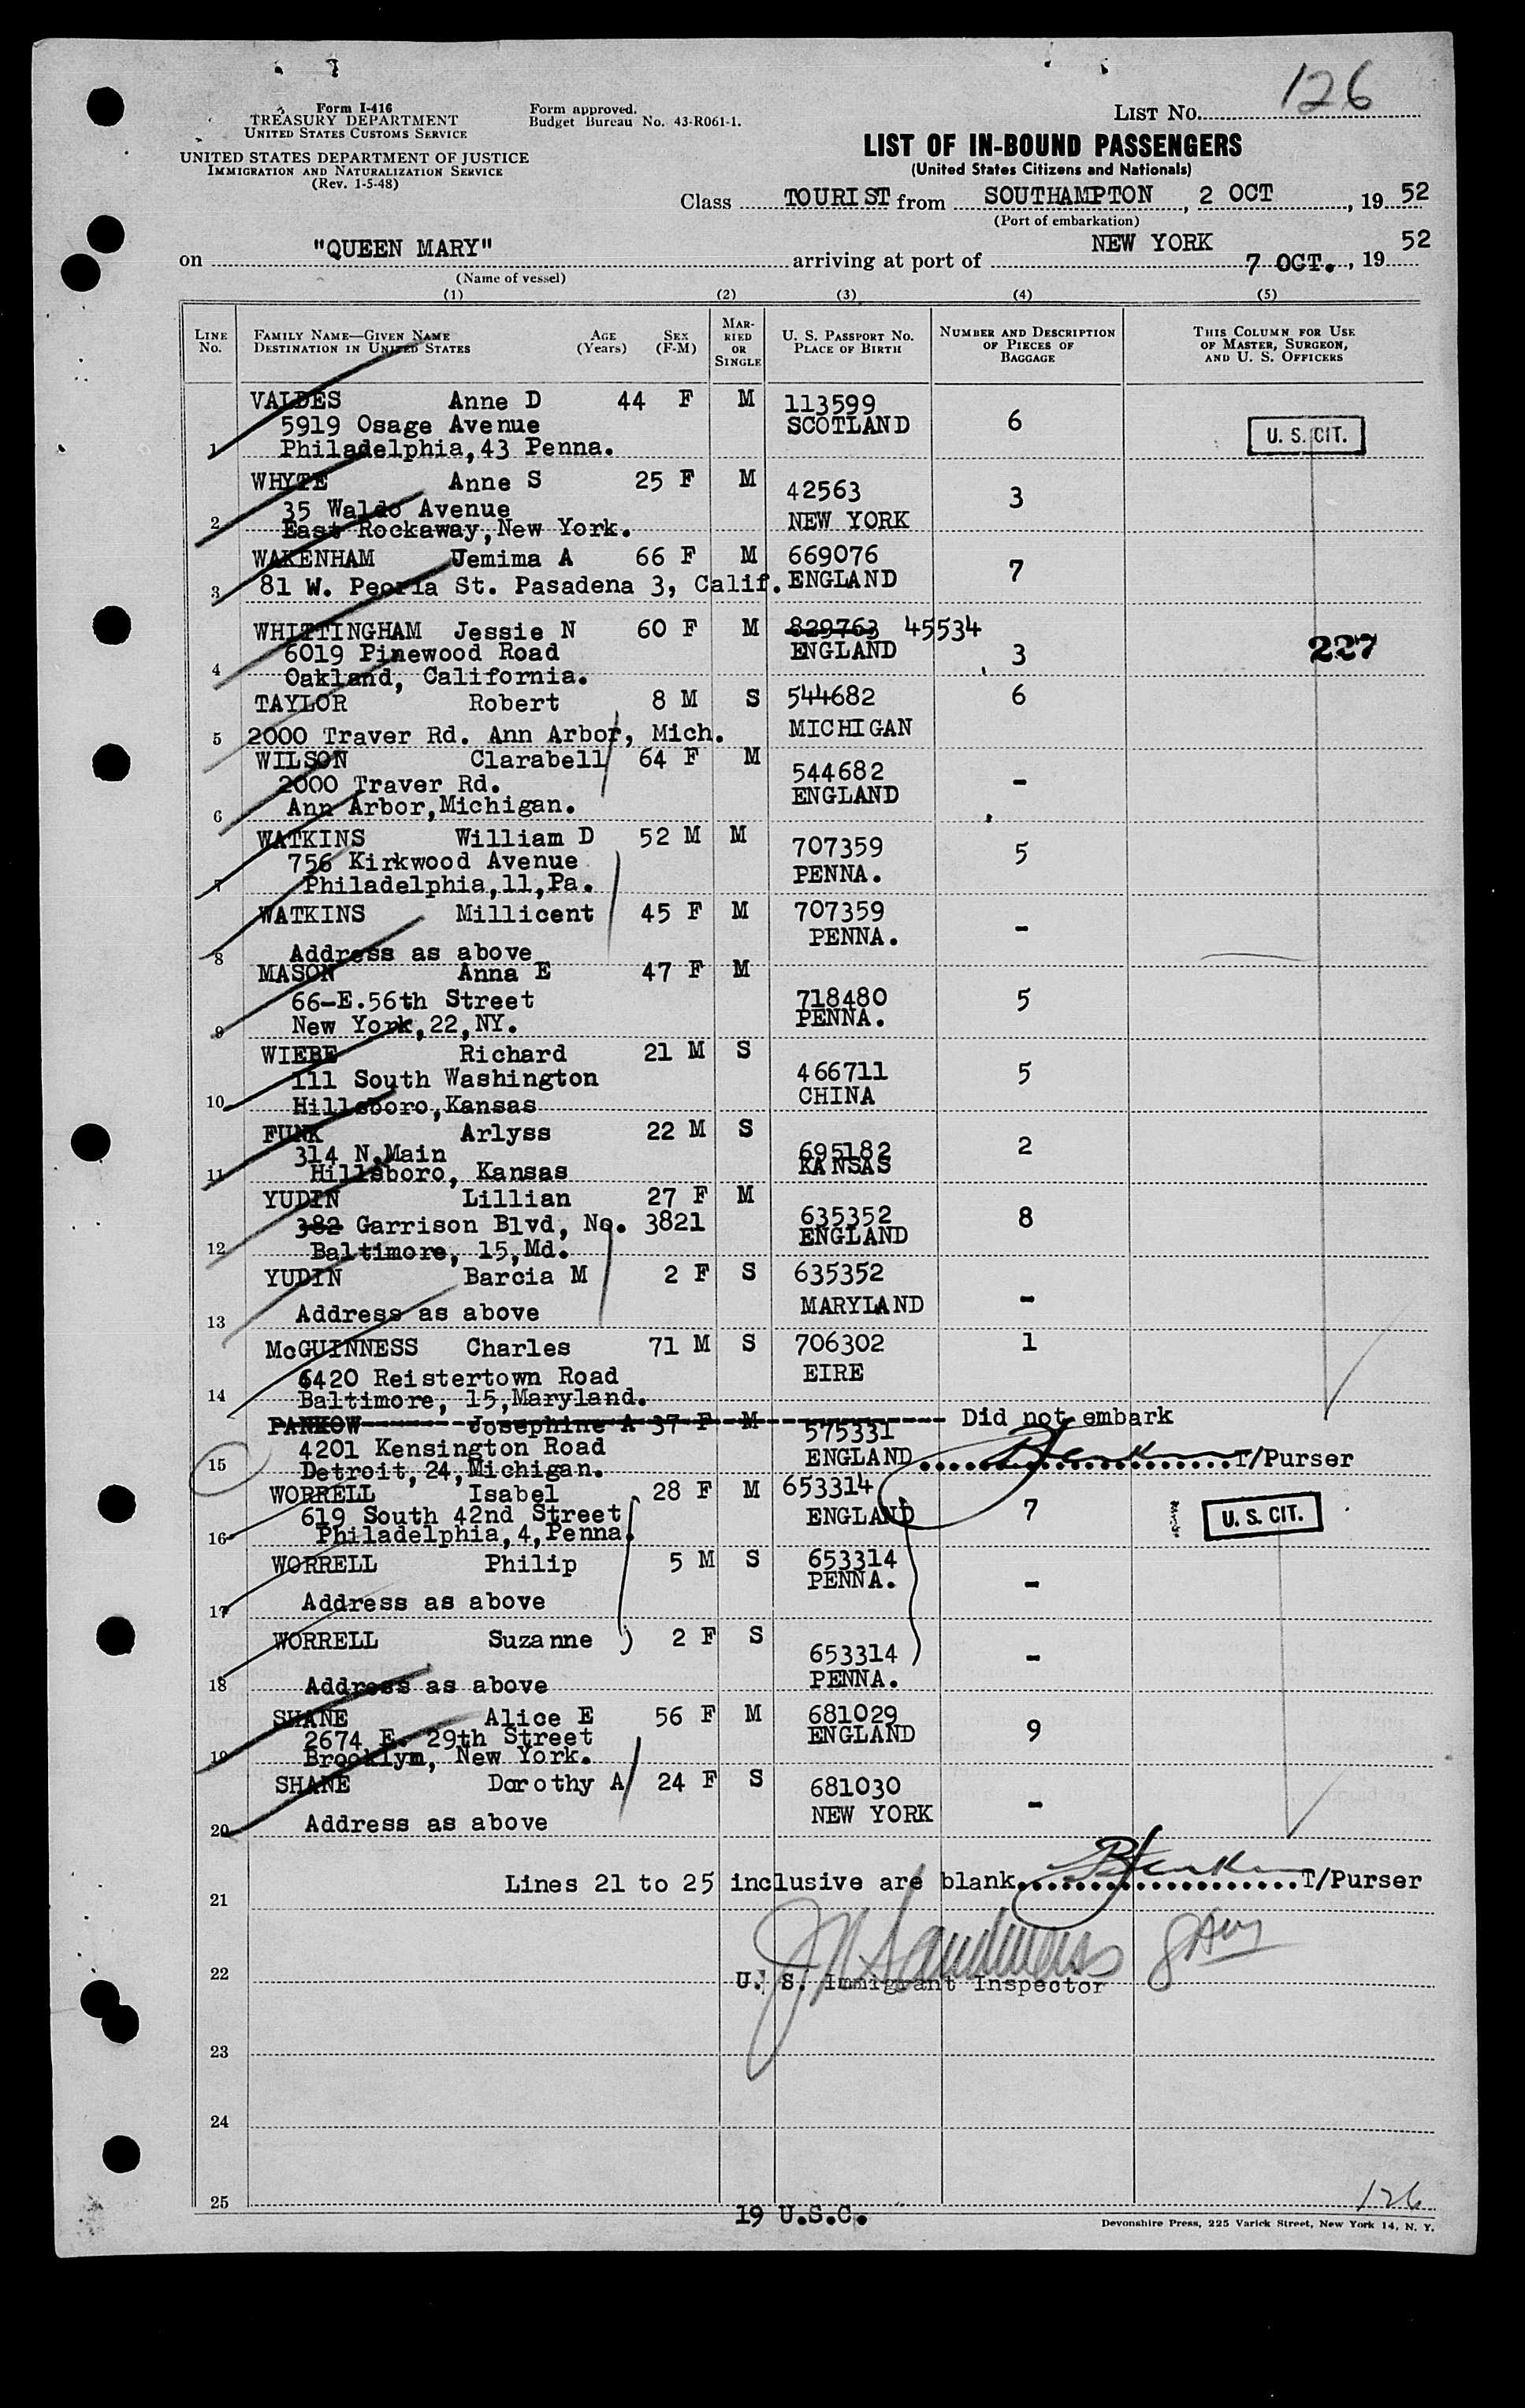 126
Form I-416
TREASURY DEPARTMENT
UNITED STATES CUSTOMS SERVICE
UNITED STATES DEPARTMENT OF JUSTICE
IMMIGRATION AND NATURALIZATION SERVICE
(Rev. 1-5-48)
Form approved.
Budget Bureau No. 43-R061-1.
LIST No.
LIST OF IN-BOUND PASSENGERS
(United States Citizens and Nationals)
Class TOURIST from SOUTHAMPTON, 2 OCT, 1952
(Port of embarkation)
on "QUEEN MARY" arriving at port of NEW YORK 7 OCT., 1952
(Name of vessel)
(1) (2) (3) (4) (5)
LINE No. FAMILY NAME—GIVEN NAME DESTINATION IN UNITED STATES AGE (Years) SEX (F-M) MARRIED OR SINGLE U. S. PASSPORT No. PLACE OF BIRTH NUMBER AND DESCRIPTION OF PIECES OF BAGGAGE THIS COLUMN FOR USE OF MASTER, SURGEON, AND U. S. OFFICERS
VALDES Anne D 44 F M 113599
5919 Osage Avenue SCOTLAND 6 U. S. CIT.
1 Philadelphia,43 Penna.
WHYTE Anne S 25 F M 42563 3
35 Waldo Avenue NEW YORK
2 East Rockaway,New York.
WAKENHAM Jemima A 66 F M 669076 7
3 81 W. Peoria St. Pasadena 3, Calif. ENGLAND
WHITTINGHAM Jessie N 60 F M 829763 45534
6019 Pinewood Road ENGLAND 3 227
4 Oakland, California.
TAYLOR Robert 8 M S 544682 6
5 2000 Traver Rd. Ann Arbor, Mich. MICHIGAN
WILSON Clarabell 64 F M 544682 -
2000 Traver Rd. ENGLAND
6 Ann Arbor,Michigan.
WATKINS William D 52 M M 707359 5
756 Kirkwood Avenue PENNA.
7 Philadelphia,11,Pa.
WATKINS Millicent 45 F M 707359 -
PENNA.
8 Address as above
MASON Anna E 47 F M
66-E.56th Street 718480 5
9 New York,22,NY. PENNA.
WIEBE Richard 21 M S 466711 5
111 South Washington CHINA
10 Hillsboro,Kansas
FUNK Arlyss 22 M S 695182 2
314 N.Main KANSAS
11 Hillsboro, Kansas
YUDIN Lillian 27 F M 635352 8
382 Garrison Blvd, No. 3821 ENGLAND
12 Baltimore, 15,Md.
YUDIN Barcia M 2 F S 635352
13 Address as above MARYLAND -
McGUINNESS Charles 71 M S 706302 1
6420 Reistertown Road EIRE
14 Baltimore, 15,Maryland.
PANKOW Josephine A 37 F M 575331 Did not embark
4201 Kensington Road ENGLAND T/Purser
15 Detroit,24,Michigan.
WORRELL Isabel 28 F M 653314
619 South 42nd Street ENGLAND 7 U. S. CIT.
16 Philadelphia,4,Penna.
WORRELL Philip 5 M S 653314
PENNA. -
17 Address as above
WORRELL Suzanne 2 F S 653314 -
18 Address as above PENNA.
SHANE Alice E 56 F M 681029
2674 E. 29th Street ENGLAND 9
19 Brooklym, New York.
SHANE Dorothy A 24 F S 681030
20 Address as above NEW YORK -
21 Lines 21 to 25 inclusive are blank T/Purser
22 U. S. Immigrant Inspector
23
24
25
126
19 U.S.C.
Devonshire Press, 225 Varick Street, New York 14, N. Y.